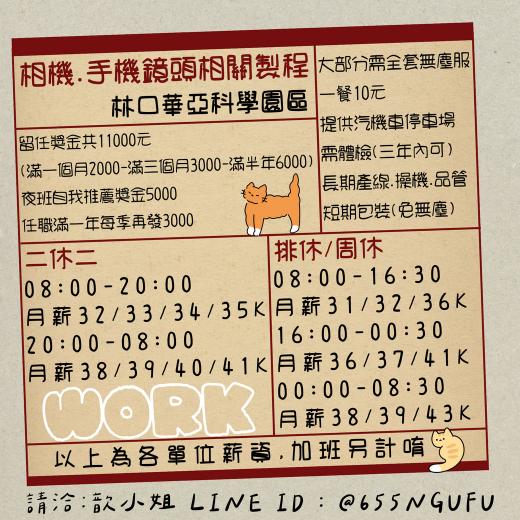 相機.手機鏡頭相關製程
林口華亞科學園區
留任獎金共11000元
(滿一個月2000-滿三個月3000-滿半年6000)
夜班自我推薦獎金5000
任職滿一年每季再發3000
大部分需全套無塵服
一餐10元
提供汽機車停車場
需體檢(三年內可)
長期產線.操機.品管
短期包裝(免無塵)
二休二
08:00-20:00
月薪32/33/34/35K
20:00-08:00
月薪38/39/40/41K
WORK
排休/周休
08:00-16:30
月薪31/32/36K
16:00-00:30
月薪36/37/41K
00:00-08:30
月薪38/39/43K
以上為各單位薪資,加班另計唷
請洽:歆小姐 LINE ID : @655NGUFU